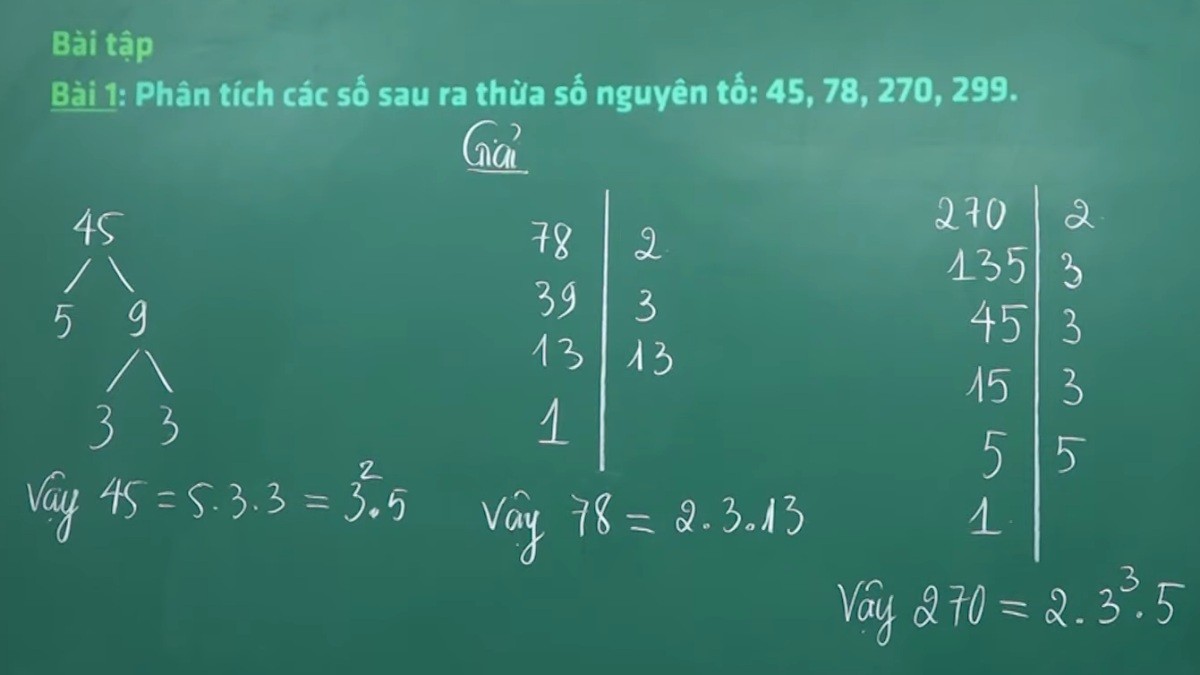 Bài tập
Bài 1: Phân tích các số sau ra thừa số nguyên tố: 45, 78, 270, 299.
Giải
45
5 9
3 3
Vậy 45 = 5.3.3 = 3².5
78 | 2
39 | 3
13 | 13
1 |
Vậy 78 = 2.3.13
270 | 2
135 | 3
45 | 3
15 | 3
5 | 5
1 |
Vậy 270 = 2.3³.5